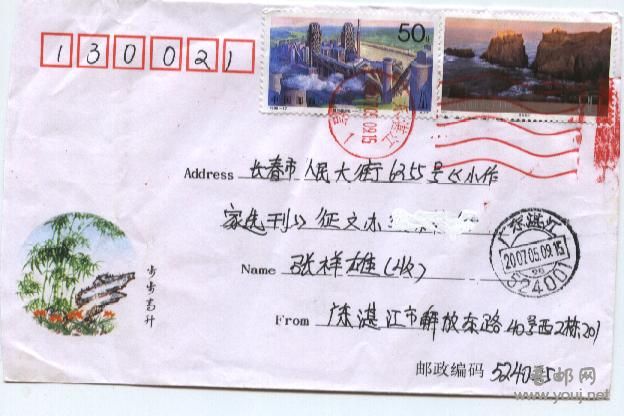 130021
50分
Address 长春市人民大街6255号《小作
家选刊》征文办
Name 张祥雄(收)
From 广东湛江市解放东路40号西2栋201
邮政编码 524045
步步高升
广东湛江
2007.05.09.15
524001
www.youj.net